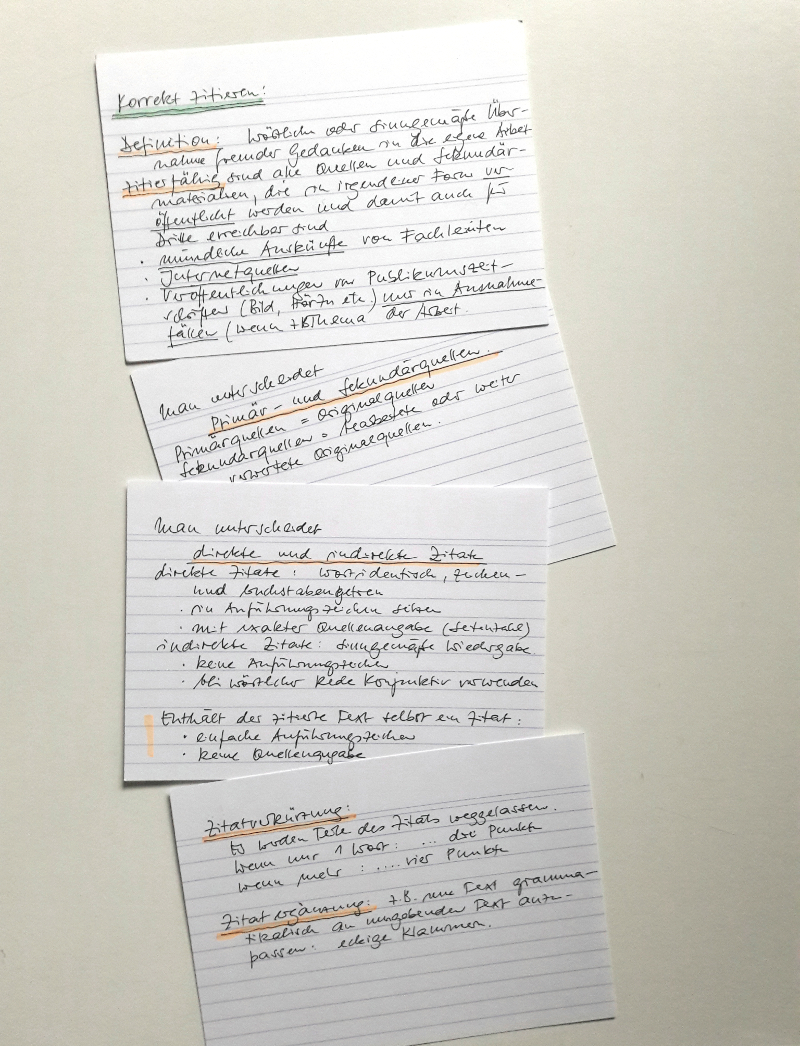 Korrekt zitieren:
Definition: Wörtliche oder sinngemäße Über-
nahme fremder Gedanken in die eigene Arbeit
zitierfähig sind alle Quellen und Sekundär-
materialien, die in irgendeiner Form ver-
öffentlicht werden und damit auch für
Dritte erreichbar sind
· mündliche Auskünfte von Fachleuten
· Internetquellen
· Veröffentlichungen von Publikumszeit-
schriften (Bild, HörZu etc) nur in Ausnahme-
fällen (wenn z.B. Thema der Arbeit.
man unterscheidet
Primär- und Sekundärquellen.
Primärquellen = Originalquellen
Sekundärquellen = bearbeitete oder weiter
verwertete Originalquellen.
man unterscheidet
direkte und indirekte Zitate
direkte Zitate: wortidentisch, zeichen-
und buchstabengetreu
· in Anführungszeichen setzen
· mit exakter Quellenangabe (Seitenzahl)
indirekte Zitate: sinngemäße Wiedergabe
· keine Anführungszeichen
· bei wörtlicher Rede Konjunktiv verwenden
Enthält der zitierte Text selbst ein Zitat:
· einfache Anführungszeichen
· keine Quellenangabe
Zitatverkürzung:
Es werden Teile des Zitats weggelassen.
Wenn nur 1 Wort: ... drei Punkte
wenn mehr: .... vier Punkte
Zitatergänzung: z.B. um Text gramma-
tikalisch an umgebenden Text anzu-
passen: eckige Klammern.